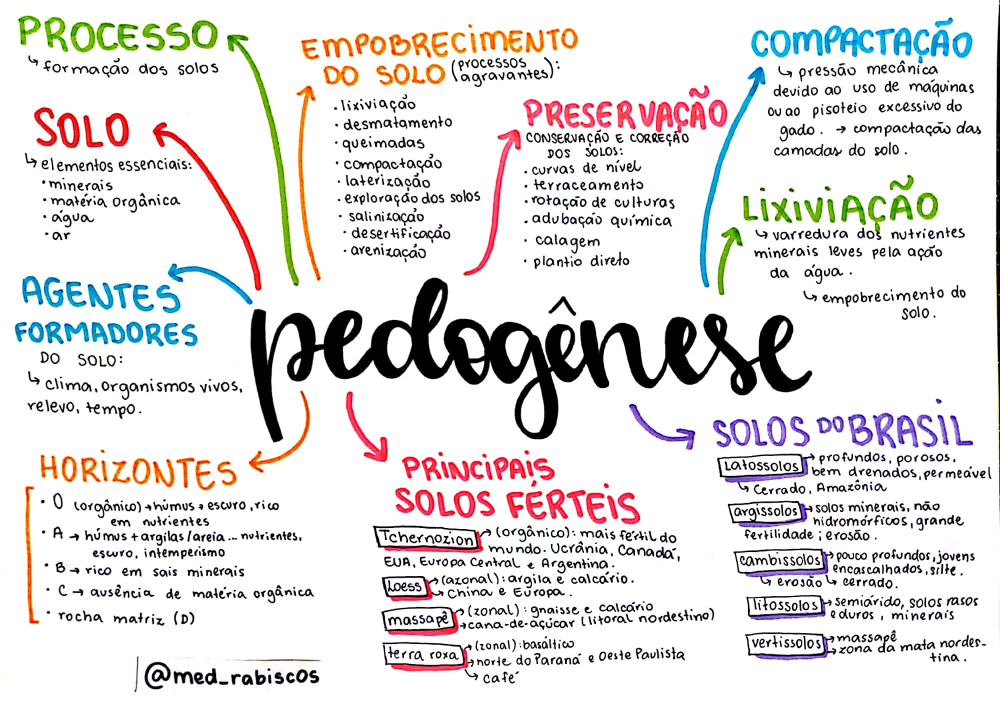 PROCESSO
↳ formação dos solos
SOLO
↳ elementos essenciais:
• minerais
• matéria orgânica
• água
• ar
AGENTES
FORMADORES
DO SOLO:
↳ clima, organismos vivos,
relevo, tempo.
EMPOBRECIMENTO
DO SOLO (processos agravantes):
• lixiviação
• desmatamento
• queimadas
• compactação
• laterização
• exploração dos solos
• salinização
• desertificação
• arenização
PRESERVAÇÃO
CONSERVAÇÃO E CORREÇÃO
DOS SOLOS:
• curvas de nível
• terraceamento
• rotação de culturas
• adubação química
• calagem
• plantio direto
COMPACTAÇÃO
↳ pressão mecânica
devido ao uso de máquinas
ou ao pisoteio excessivo do
gado. → compactação das
camadas do solo.
LIXIVIAÇÃO
↳ varredura dos nutrientes
minerais leves pela ação
da água.
↳ empobrecimento do
solo.
pedogênese
HORIZONTES
• O (orgânico) → húmus → escuro, rico
em nutrientes
• A → húmus + argilas/areia ... nutrientes,
escuro, intemperismo
• B → rico em sais minerais
• C → ausência de matéria orgânica
• rocha matriz (D)
PRINCIPAIS
SOLOS FÉRTEIS
Tchernozion → (orgânico): mais fértil do
mundo. Ucrânia, Canadá,
EUA, Europa Central e Argentina.
Loess → (azonal): argila e calcário.
→ China e Europa.
massapê → (zonal): gnaisse e calcário
→ cana-de-açúcar (litoral nordestino)
terra roxa → (zonal): basáltico
→ norte do Paraná e Oeste Paulista
↳ café
SOLOS DO BRASIL
Latossolos → profundos, porosos,
bem drenados, permeável
↳ Cerrado, Amazônia
argissolos → solos minerais, não
hidromórficos, grande
fertilidade; erosão.
cambissolos → pouco profundos, jovens
encascalhados, silte.
↳ erosão ↳ cerrado.
litossolos → semiárido, solos rasos
e duros, minerais
vertissolos → massapê
→ zona da mata nordes-
tina.
@med_rabiscos